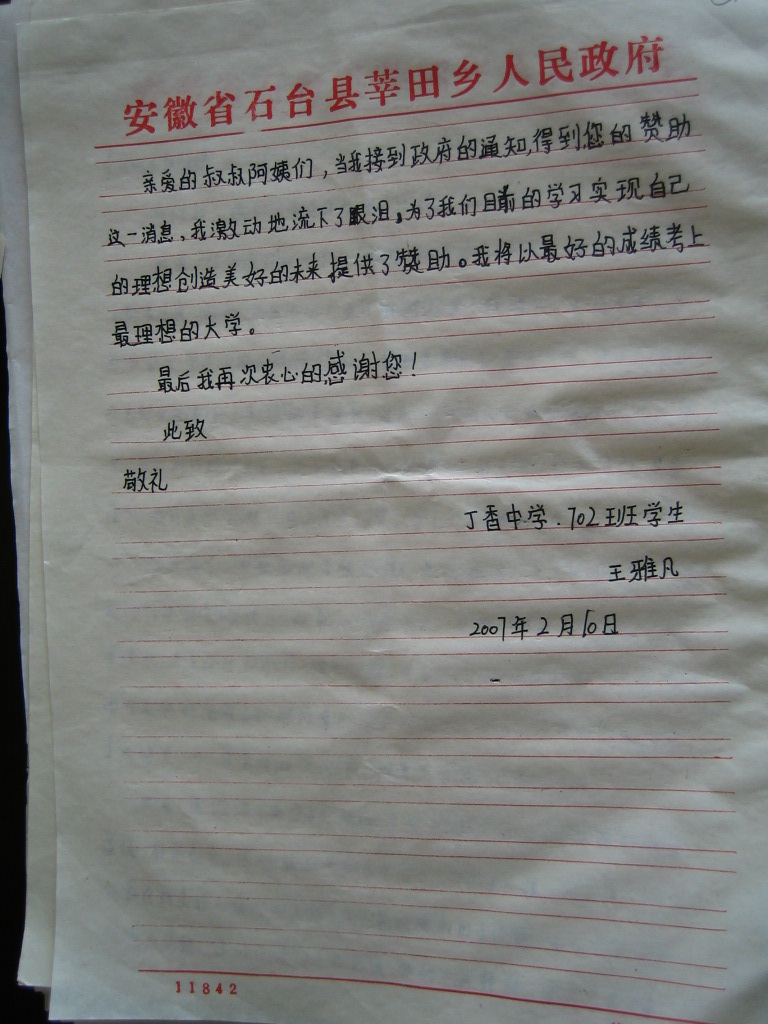 安徽省石台县莘田乡人民政府
亲爱的叔叔阿姨们，当我接到政府的通知，得到您的赞助
这一消息，我激动地流下了眼泪。为了我们目前的学习实现自己
的理想创造美好的未来提供了赞助。我将以最好的成绩考上
最理想的大学。
最后我再次衷心的感谢您！
此致
敬礼
丁香中学．702班学生
王雅凡
2007年2月10日
11842